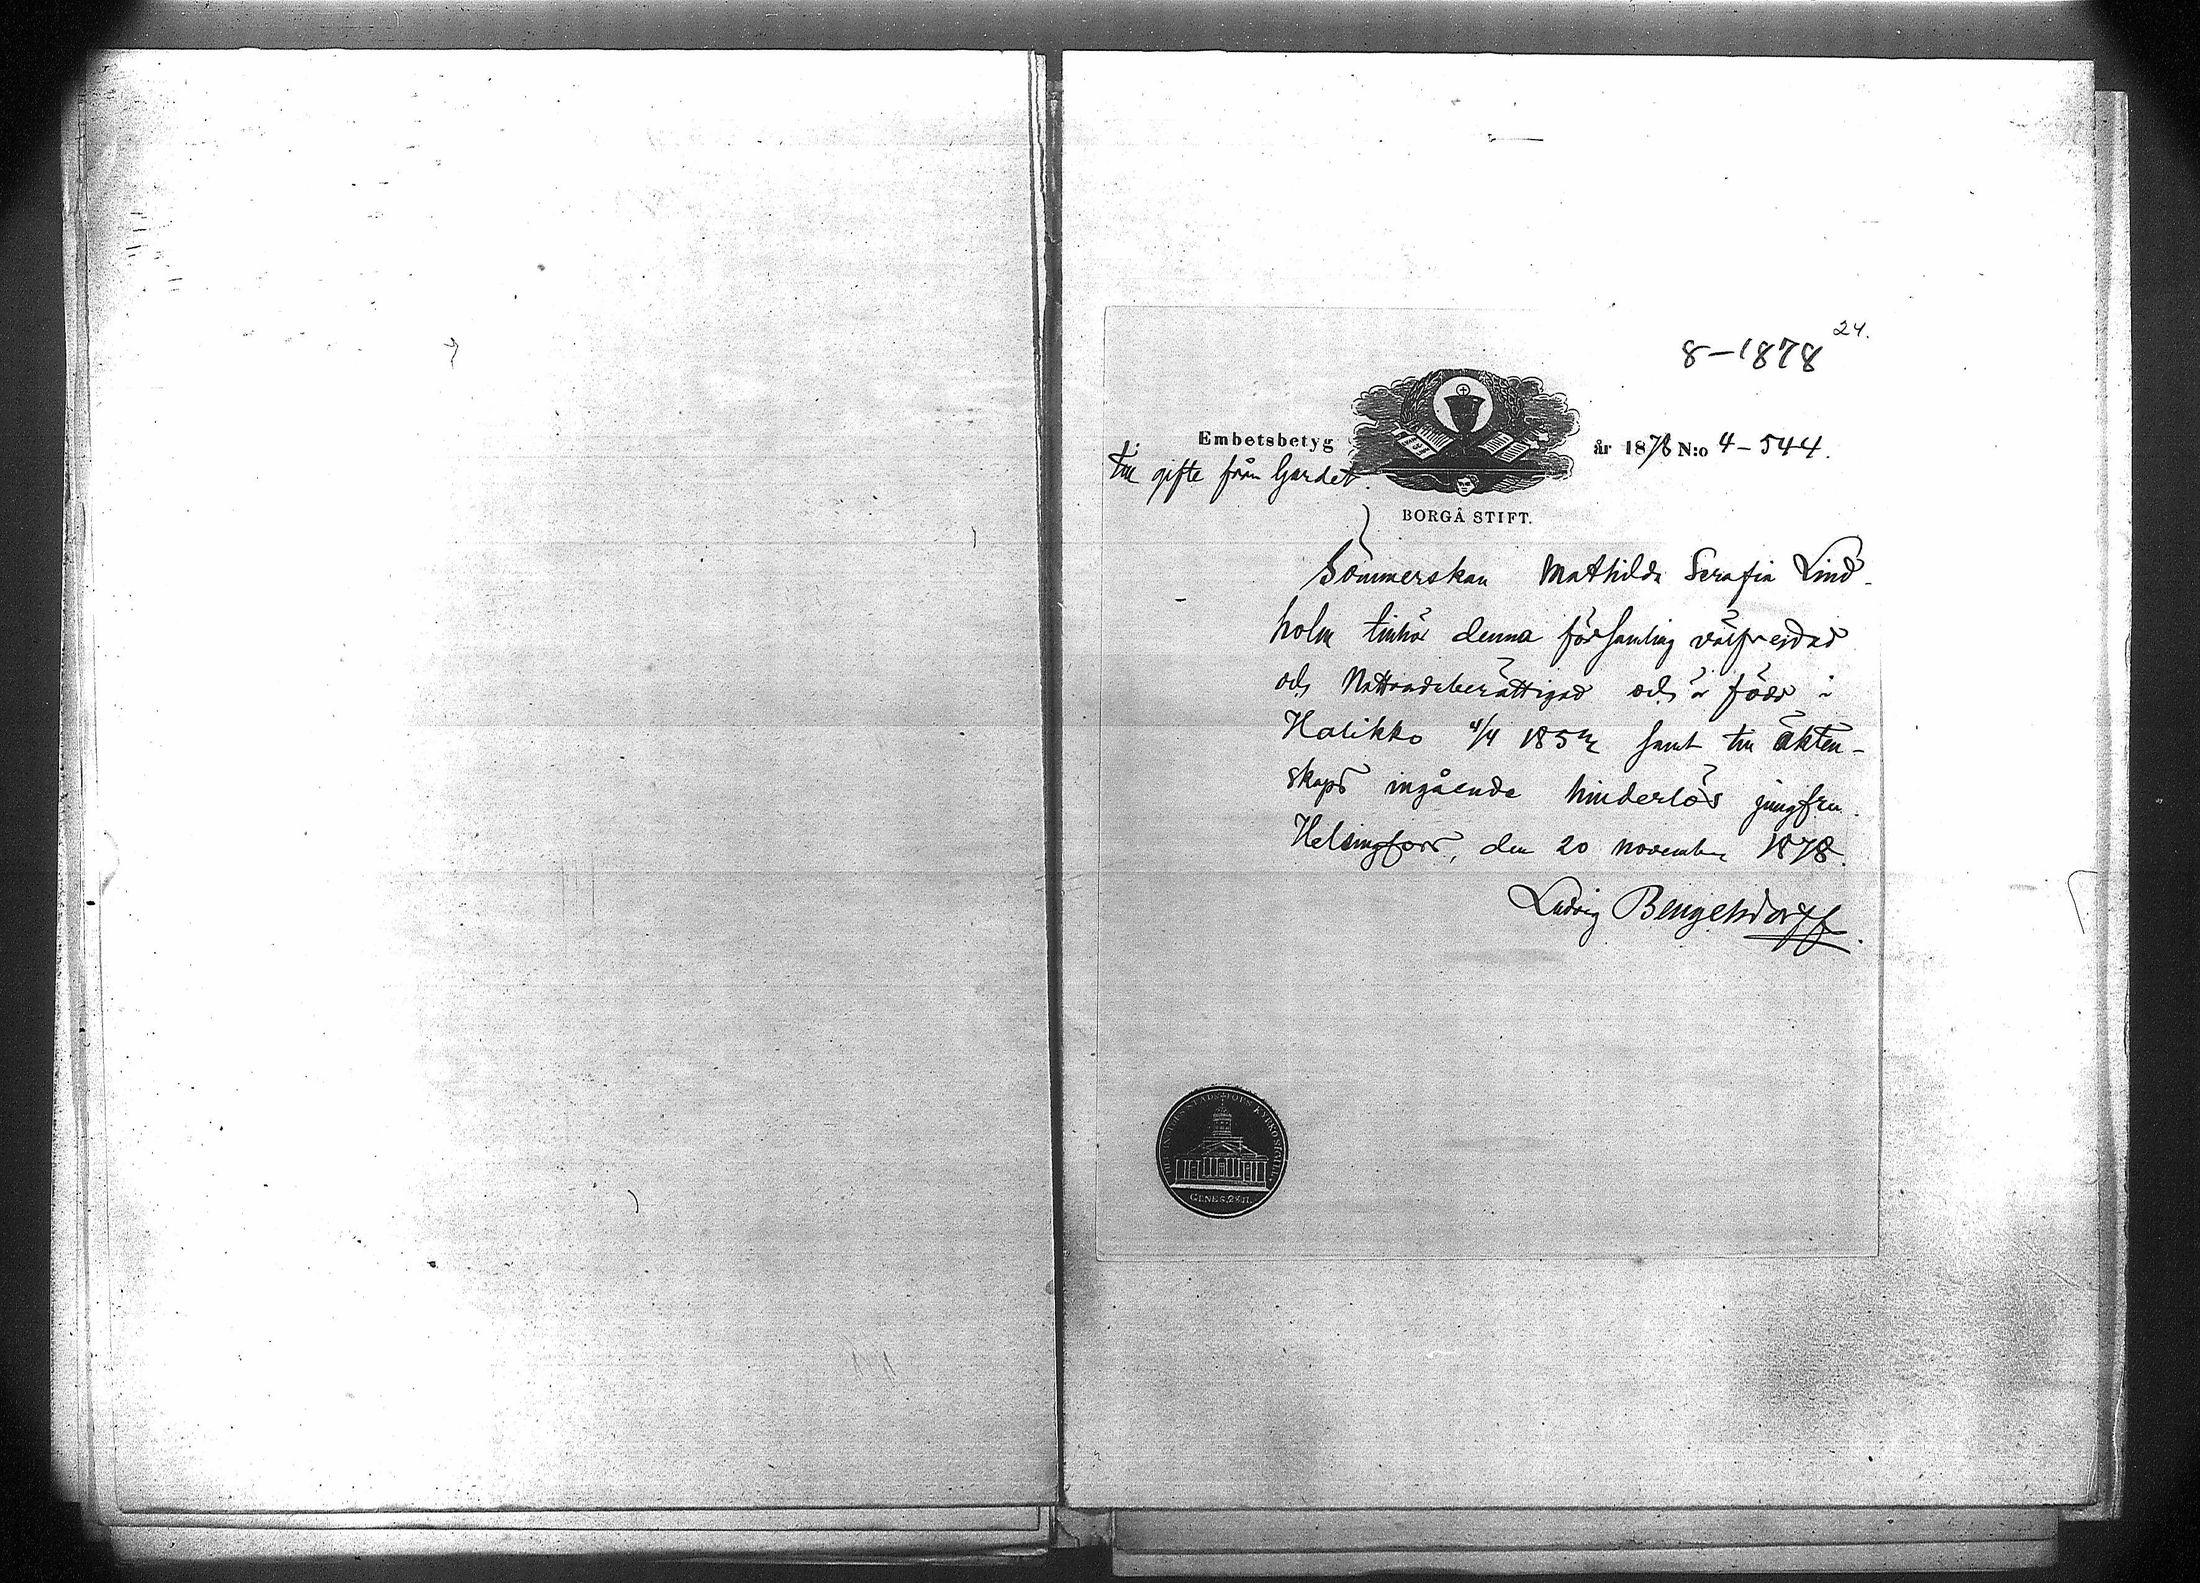 24.
8-1878
Embetsbetyg år 1878 N:o 4-544.
till gifte från Gardet.
BORGÅ STIFT.
Sömmerskan Mathilda Serafia Lind-
holm tillhör denna församling välfrejdad
och Nattvardsberättigad och är född i
Halikko 4/4 185 samt till äkten-
skaps ingående hinderlös jungfru.
Helsingfors, den 20 november 1878.
Ludvig Bengelsdorff.
GENES. 28.17.